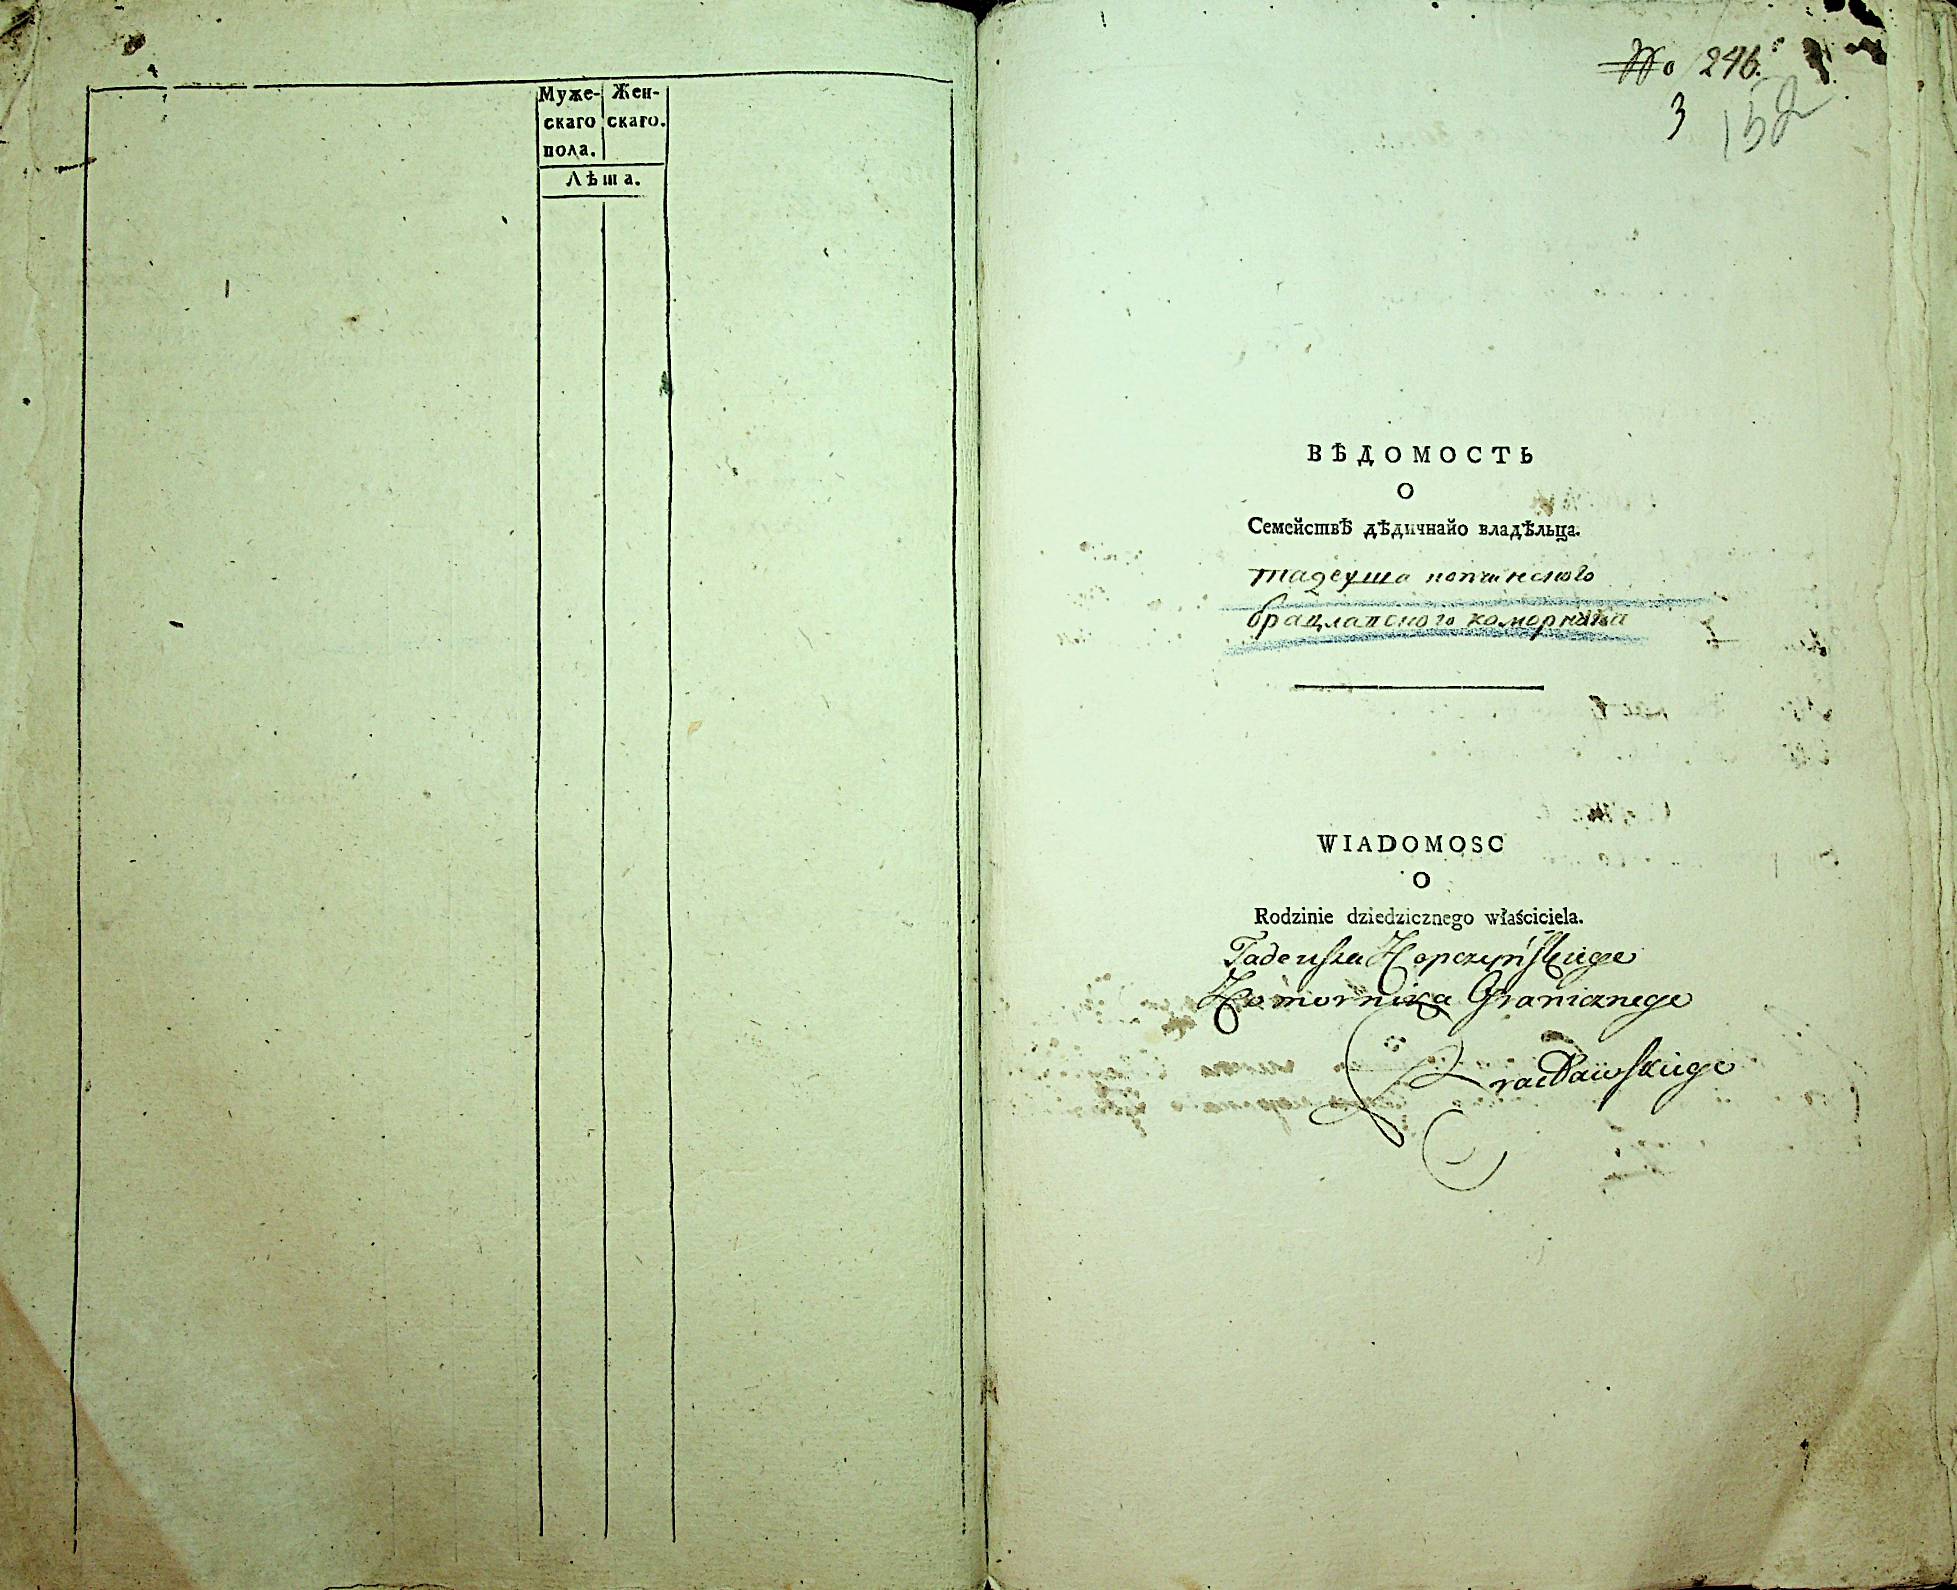 Муже-
скаго
пола.
Жен-
скаго.
Лѣта.
No 246.
3 152
ВѢДОМОСТЬ
О
Семействѣ дѣдичнайо владѣльца.
тадеуша копчинского
брацлавского коморника
WIADOMOSC
O
Rodzinie dziedzicznego właściciela.
Tadeusza Kopczyńskiego
Komornika Granicznego
Bracławskiego